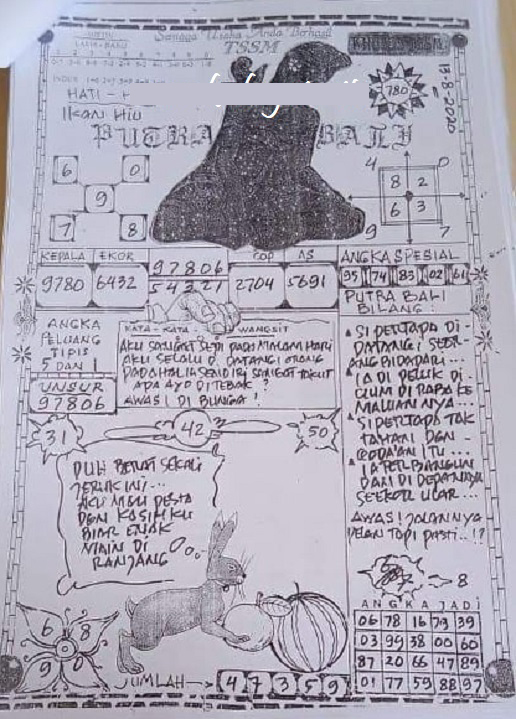 Semoga Usaha Anda Berhasil
TSSM
HATI - +
IKAN HIU
780
13-8-2020
PUTRA BALI
6 0
9
7 8
4 0
8 2
6 3
9 7
KEPALA EKOR 97806 COP AS
9780 6432 54321 2704 5691
ANGKA SPESIAL
95 74 83 02 61
PUTRA BALI
BILANG :
ANGKA
PELUANG
TIPIS
5 DAN 1
UNSUR
97806
KATA - KATA WANGSIT
AKU SANGAT SEPI PADA MALAM HARI
AKU SELALU DI DATANGI ORANG
PADAHAL IA SENDIRI SANGAT TAKUT
APA AYO DI TEBAK ?
AWAS ! DI BUNGA !
SI PERTAPA DI -
DATANGI SEOR -
ANG BIDADARI ...
IA DI PELUK DI -
CIUM DI RABA KE
MALUAN NYA ...
SI PERTAPA TAK
TAHAN DGN -
GODA'AN ITU ...
IA TERBANGUN
DAN DI DEPANNYA
SEEKOR ULAR ...
AWAS ! JALANNYA
PELAN TAPI PASTI .. !?
31 42 50
DUH BERAT SEKALI
JERUK INI ...
AKU MAU PESTA
DGN KASIH KU
BIAR ENAK
MAIN DI
RANJANG
8
ANGKA JADI
06 78 16 73 39
03 99 38 00 60
87 20 66 47 89
01 77 59 88 97
6 8
9 0
JUMLAH → 4 7 3 5 9